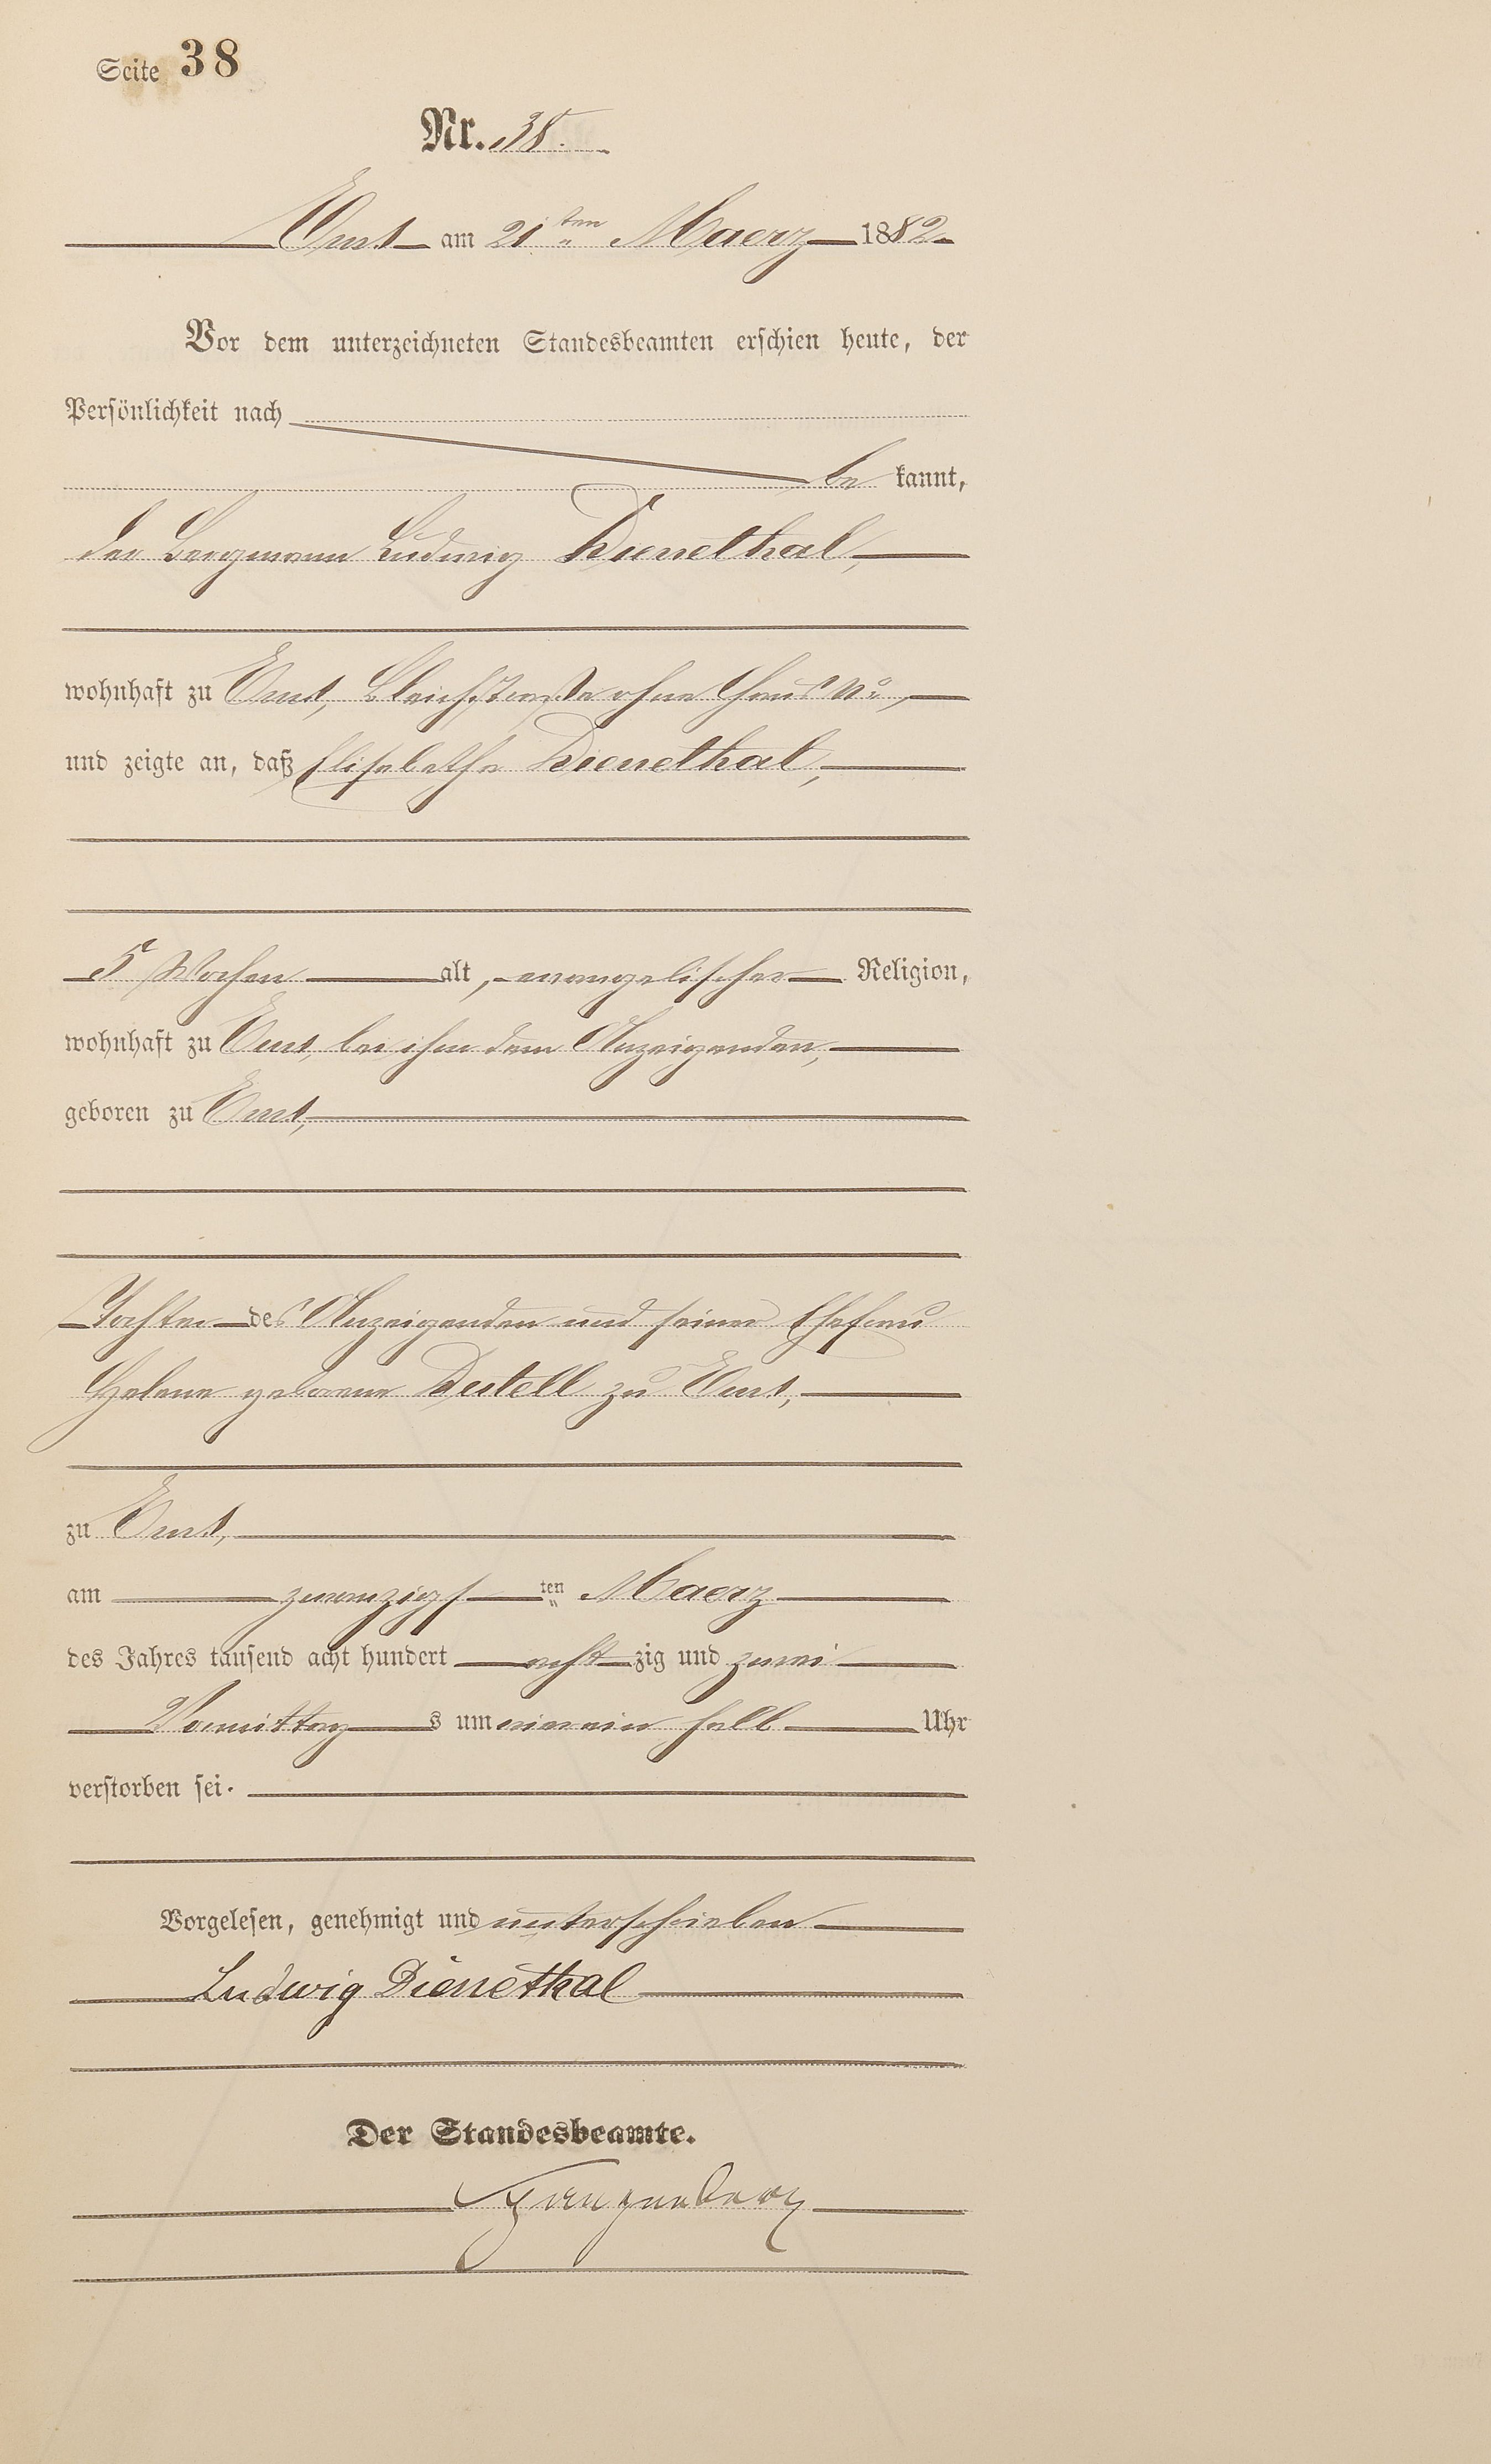 Seite 38
Nr. 38.
Ems am 21ten Maerz 1882
Vor dem unterzeichneten Standesbeamten erschien heute, der
Persönlichkeit nach
be kannt,
der Bergmann Ludwig Dienethal,
wohnhaft zu Ems, Bleichstraße ohne Haus No.,
und zeigte an, daß Elisabetha Dienethal,
5 Wochen alt, evangelischer Religion,
wohnhaft zu Ems, bei ihm dem Anzeigenden,
geboren zu Ems,
Tochter des Anzeigenden und seiner Ehefrau
Helene geborene Destell zu Ems,
zu Ems,
am zwanzigsten Maerz
des Jahres tausend acht hundert acht zig und zwei
Vormittags um ein halb Uhr
verstorben sei.
Vorgelesen, genehmigt und unterschrieben
Ludwig Dienethal
Der Standesbeamte.